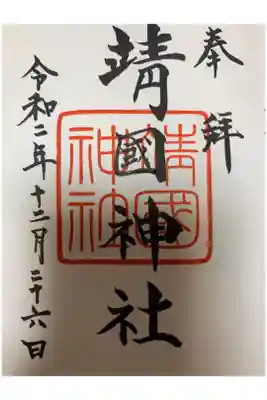 奉拜
靖國神社
令和二年十二月二十六日
靖國
神社